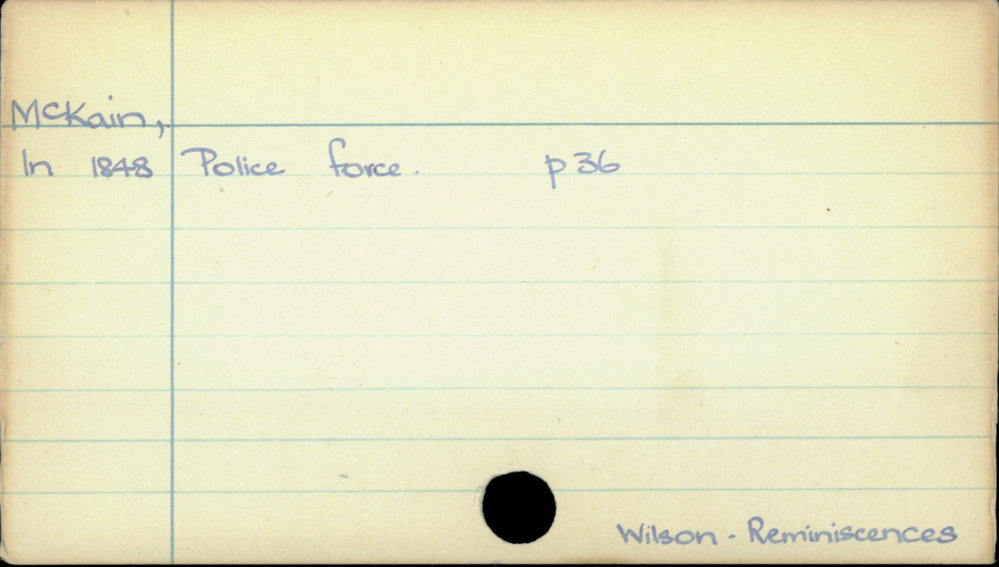 McKain,
In 1848 Police force. p 36
Wilson - Reminiscences